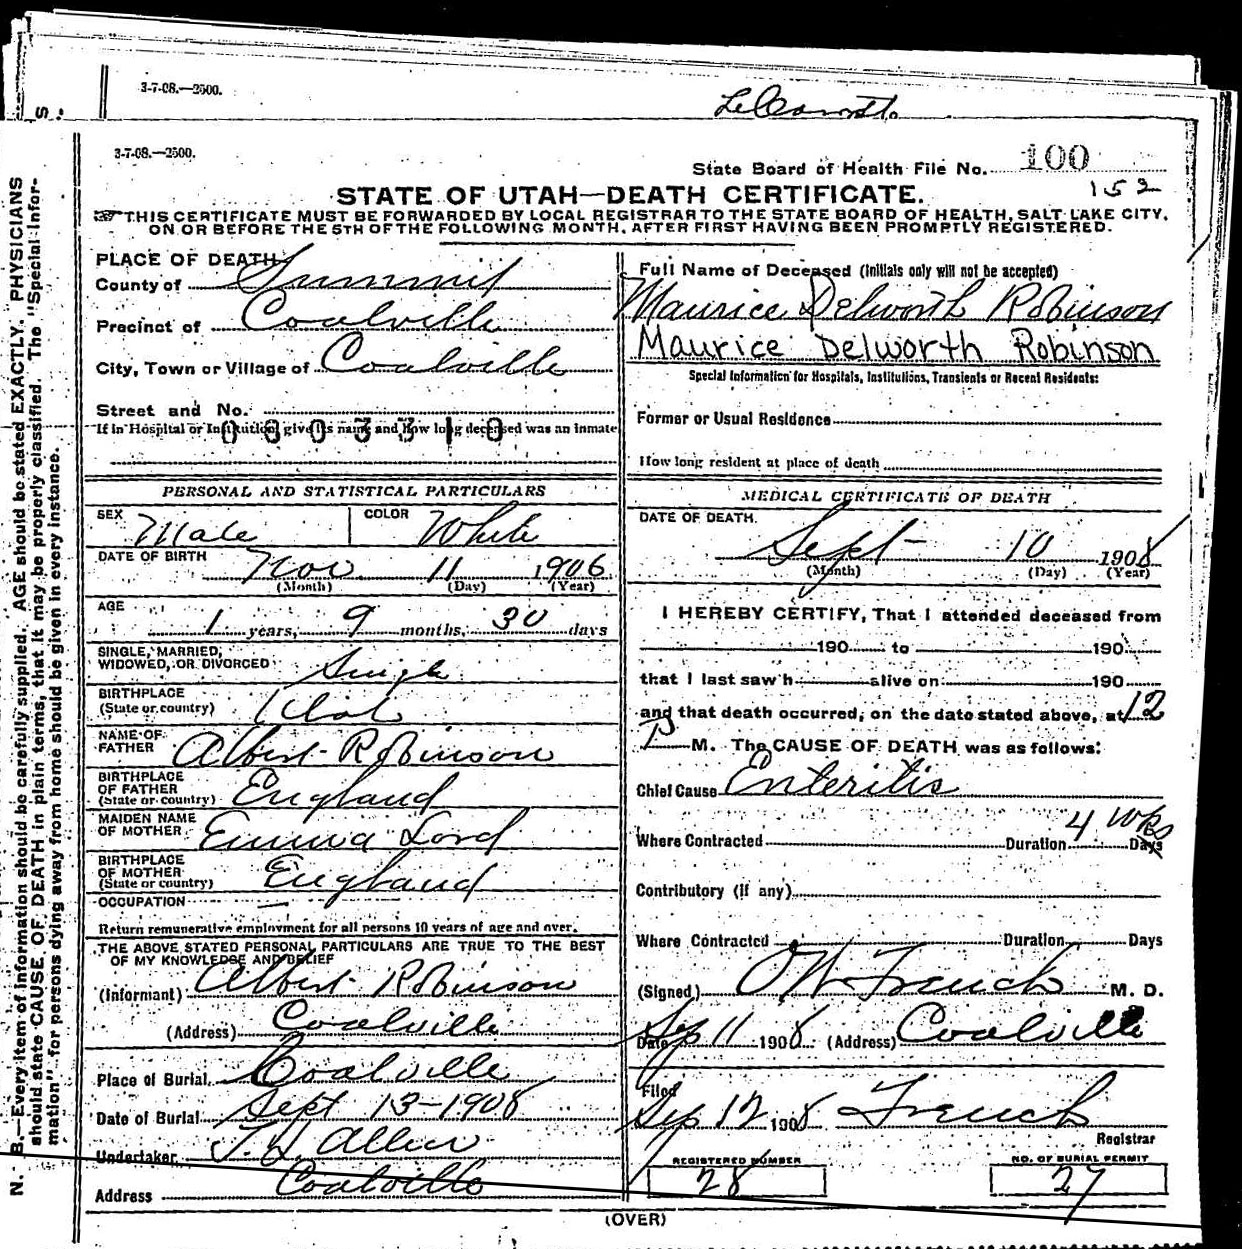 3-7-08.—2500.
3-7-08.—2500.
State Board of Health File No. 100
152
STATE OF UTAH—DEATH CERTIFICATE.
THIS CERTIFICATE MUST BE FORWARDED BY LOCAL REGISTRAR TO THE STATE BOARD OF HEALTH, SALT LAKE CITY,
ON OR BEFORE THE 5TH OF THE FOLLOWING MONTH, AFTER FIRST HAVING BEEN PROMPTLY REGISTERED.
N. B.—Every item of information should be carefully supplied. AGE should be stated EXACTLY. PHYSICIANS
should state CAUSE OF DEATH in plain terms, that it may be properly classified. The "Special Infor-
mation" for persons dying away from home should be given in every instance.
PLACE OF DEATH
County of Summit
Precinct of Coalville
City, Town or Village of Coalville
Street and No.
If in Hospital or Institution, give its name and how long deceased was an inmate
0803310
PERSONAL AND STATISTICAL PARTICULARS
SEX Male COLOR White
DATE OF BIRTH Nov 11 1906
(Month) (Day) (Year)
AGE
1 years, 9 months, 30 days
SINGLE, MARRIED,
WIDOWED, OR DIVORCED Single
BIRTHPLACE
(State or country) Utah
NAME OF
FATHER Albert Robinson
BIRTHPLACE
OF FATHER
(State or country) England
MAIDEN NAME
OF MOTHER Emma Lord
BIRTHPLACE
OF MOTHER
(State or country) England
OCCUPATION
Return remunerative employment for all persons 10 years of age and over.
THE ABOVE STATED PERSONAL PARTICULARS ARE TRUE TO THE BEST
OF MY KNOWLEDGE AND BELIEF
(Informant) Albert Robinson
(Address) Coalville
Place of Burial Coalville
Date of Burial Sept 13-1908
Undertaker J. H. Allen
Address Coalville
Full Name of Deceased (Initials only will not be accepted)
Maurice Delworth Robinson
Maurice Delworth Robinson
Special Information for Hospitals, Institutions, Transients or Recent Residents:
Former or Usual Residence
How long resident at place of death
MEDICAL CERTIFICATE OF DEATH
DATE OF DEATH.
Sept 10 1908
(Month) (Day) (Year)
I HEREBY CERTIFY, That I attended deceased from
190 to 190
that I last saw h alive on 190
and that death occurred, on the date stated above, at 12
P M. The CAUSE OF DEATH was as follows:
Chief Cause Enteritis
Where Contracted Duration 4 wks Days
Contributory (if any)
Where Contracted Duration Days
(Signed) OW French M. D.
Date Sep 11 1908 (Address) Coalville
Filed
Sep 12 1908 French
Registrar
REGISTERED NUMBER
28
NO. OF BURIAL PERMIT
27
(OVER)